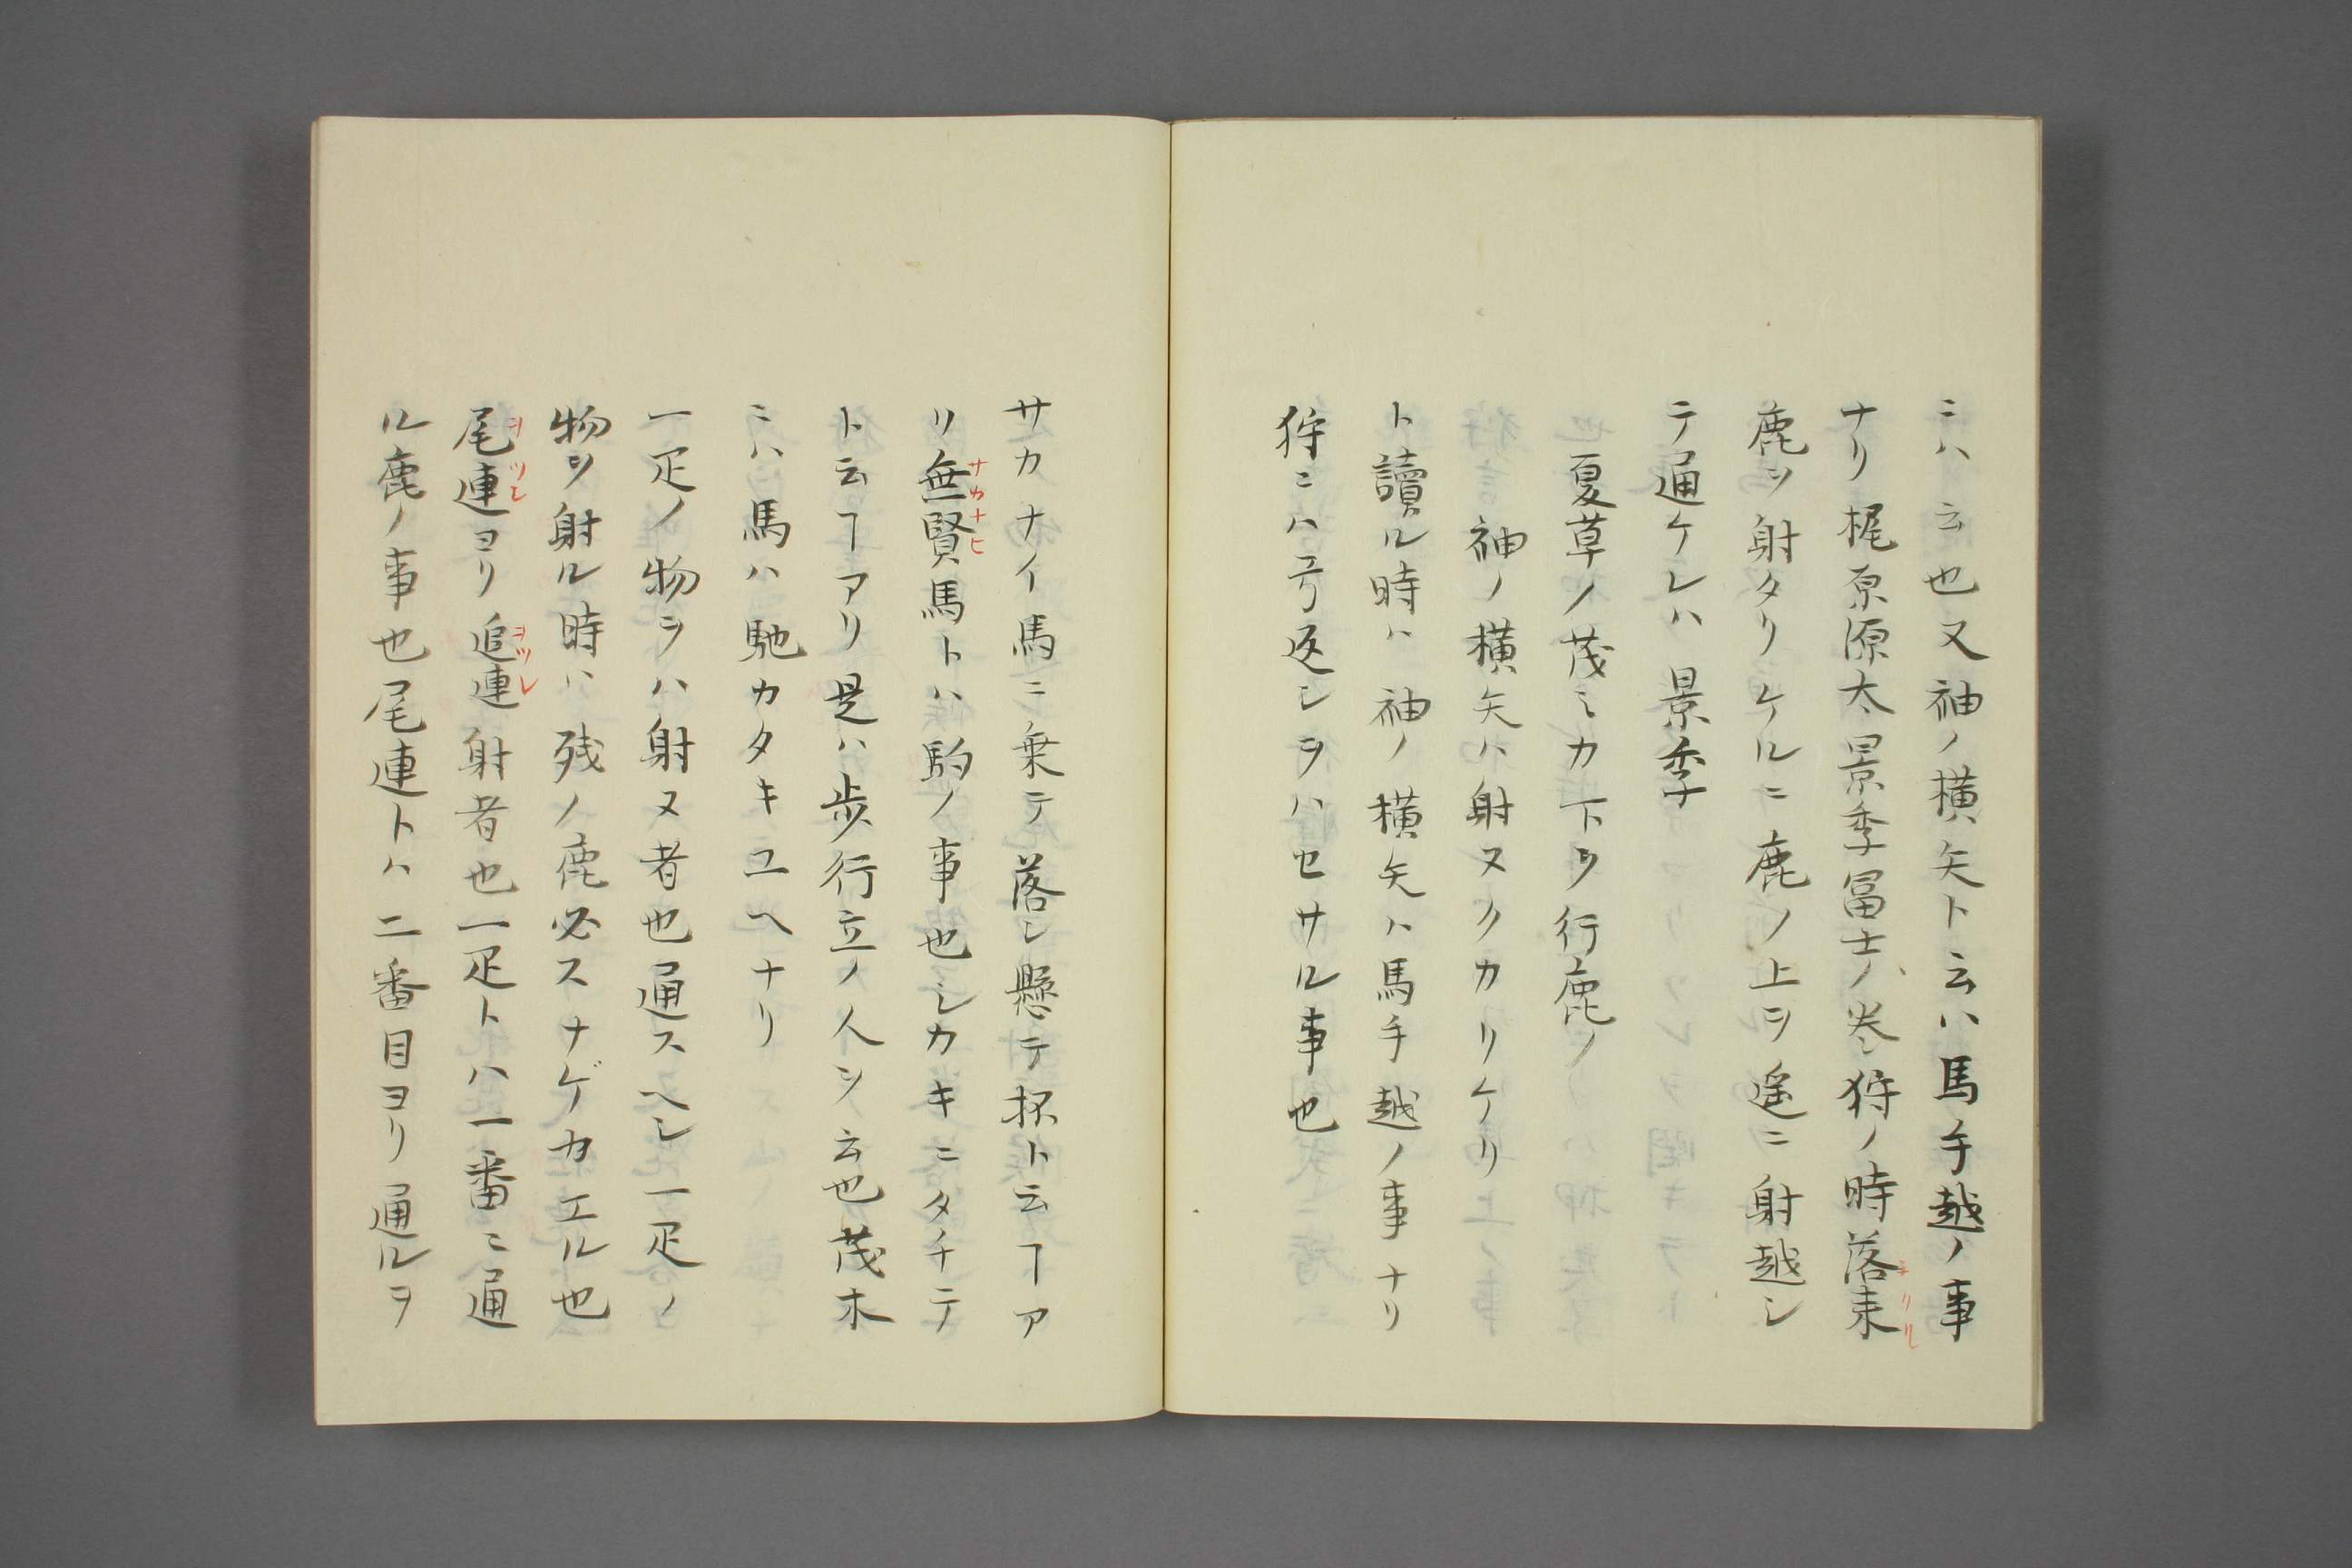 ニハ云也又袖ノ横矢ト云ハ馬手越ノ事
ナリ梶原源太景季冨士ノ巻狩ノ時落来
鹿ヲ射タリケルニ鹿ノ上ヲ遥ニ射越シ
テ通ケレハ景季
夏草ノ茂ミカ下ヲ行鹿ノ
袖ノ横矢ハ射ヌクカリケリ
ト讀ル時ハ袖ノ横矢ハ馬手越ノ事ナリ
狩ニハ弓返シヲハセサル事也
サカナイ馬ニ乗テ落シ懸テ抔ト云ヿア
リ無賢馬トハ駒ノ事也シカキニタチテ
ト云ヿアリ是ハ歩行立ノ人ヲ云也茂木
ニハ馬ハ馳カタキユヘナリ
一疋ノ物ヲハ射ヌ者也通スヘシ一疋ノ
物ヲ射ル時ハ残ノ鹿必スナゲカエル也
尾連ヨリ追連射者也一疋トハ一番ニ通
ル鹿ノ事也尾連トハ二番目ヨリ通ルヲ
サカナヒ
ヲツレ
ヲツレ